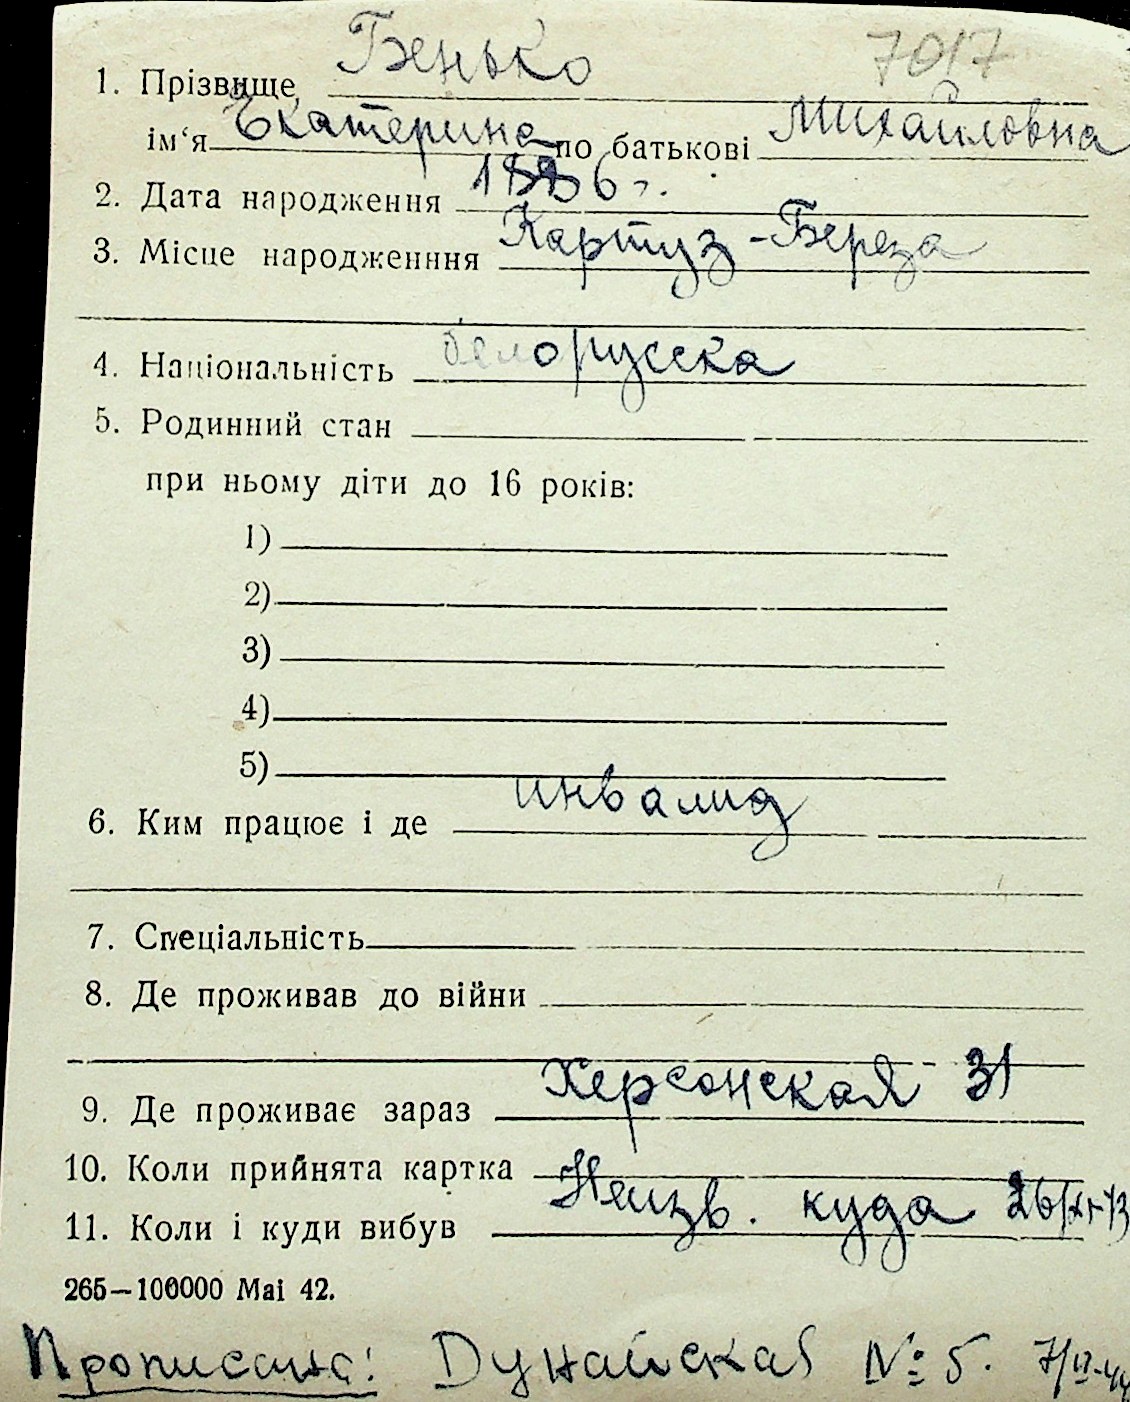 7017
1. Прізвище Бенько
ім‘я Екатерина по батькові Михайловна
2. Дата народження 1886 г.
3. Місце народженння Картуз-Береза
4. Національність белорусска
5. Родинний стан
при ньому діти до 16 років:
1)
2)
3)
4)
5)
6. Ким працює і де инвалид
7. Спеціальність
8. Де проживав до війни
9. Де проживає зараз Херсонская 31
10. Коли прийнята картка
11. Коли і куди вибув Неизв. куда
265—100000 Маі 42.
Прописана: Дунайская № 5.